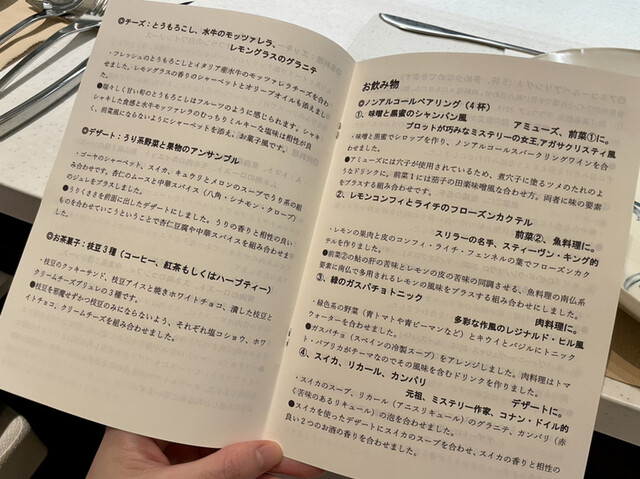 ◎チーズ：とうもろこし、水牛のモッツァレラ、
レモングラスのグラニテ
・フレッシュのとうもろこしとイタリア産水牛のモッツァレラチーズを合わ
せました。レモングラスの香りのシャーベットとオリーブオイルも添えまし
●瑞々しく甘い旬のとうもろこしはフルーツのように感じられます。シャキ
シャキした食感と水牛モッツァレラのむっちりミルキーな塩味は相性が良
く、前菜風にならないようにシャーベットを添え、お菓子風です。
◎デザート：うり系野菜と果物のアンサンブル
・ゴーヤのシャーベット、スイカ、キュウリとメロンのスープでうり系の組
み合わせです。杏仁のムースと中華スパイス（八角・シナモン・クローブ）
のジュレをプラスしました。
●うりくささを前面に出したデザートにしました。うりの香りと相性の良い
ものを合わせていこうということで杏仁豆腐や中華スパイスを組み合わせま
した。
◎お茶菓子：枝豆３種（コーヒー、紅茶もしくはハーブティー）
・枝豆のクッキーサンド、枝豆アイスと焼きホワイトチョコ、潰した枝豆と
クリームチーズブリュレの３種です。
●枝豆を邪魔せずかつ枝豆のみにならないよう、それぞれ塩コショウ、ホワ
イトチョコ、クリームチーズを組み合わせました。
お飲み物
◎ノンアルコールペアリング（４杯）
①、味噌と黒蜜のシャンパン風
アミューズ、前菜①に。
プロットが巧みなミステリーの女王,アガサクリスティ風
・味噌と黒蜜でシロップを作り、ノンアルコールスパークリングワインを合
わせました。
●アミューズには穴子が使用されているため、煮穴子に塗るツメのたれのよ
うなドリンクに。前菜１には茄子の田楽味噌風な合わせ方。両者に味の要素
をプラスする組み合わせです。
②、レモンコンフィとライチのフローズンカクテル
前菜②、魚料理に。
スリラーの名手、スティーヴン・キング的
・レモンの果肉と皮のコンフィ・ライチ・フェンネルの葉でフローズンカク
テルを作りました。
●前菜②の鮎の肝の苦味とレモンの皮の苦味の同調させる、魚料理の南仏系
要素に南仏で多用されるレモンの風味をプラスする組み合わせにしました。
③、緑のガスパチョトニック
肉料理に。
多彩な作風のレジナルド・ヒル風
・緑色系の野菜（青トマトや青ピーマンなど）とキウイとバジルにトニック
ウォーターを合わせました。
●ガスパチョ（スペインの冷製スープ）をアレンジしました。肉料理はトマ
ト・パプリカがテーマなのでその風味を含むドリンクを作りました。
④、スイカ、リカール、カンパリ
デザートに。
元祖、ミステリー作家、コナン・ドイル的
・スイカのスープ、リカール（アニスリキュール）のグラニテ、カンパリ（赤
く苦味のあるリキュール）の泡を合わせました。
●スイカを使ったデザートにスイカのスープを合わせ、スイカの香りと相性の
良い２つのお酒の香りを合わせました。